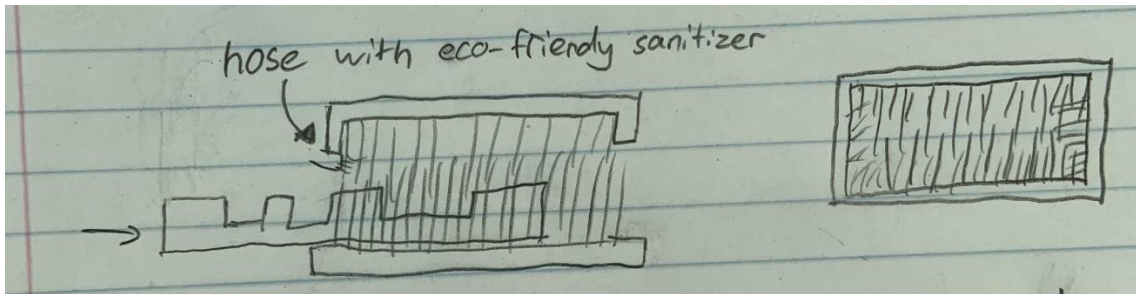 hose with eco-friendly sanitizer